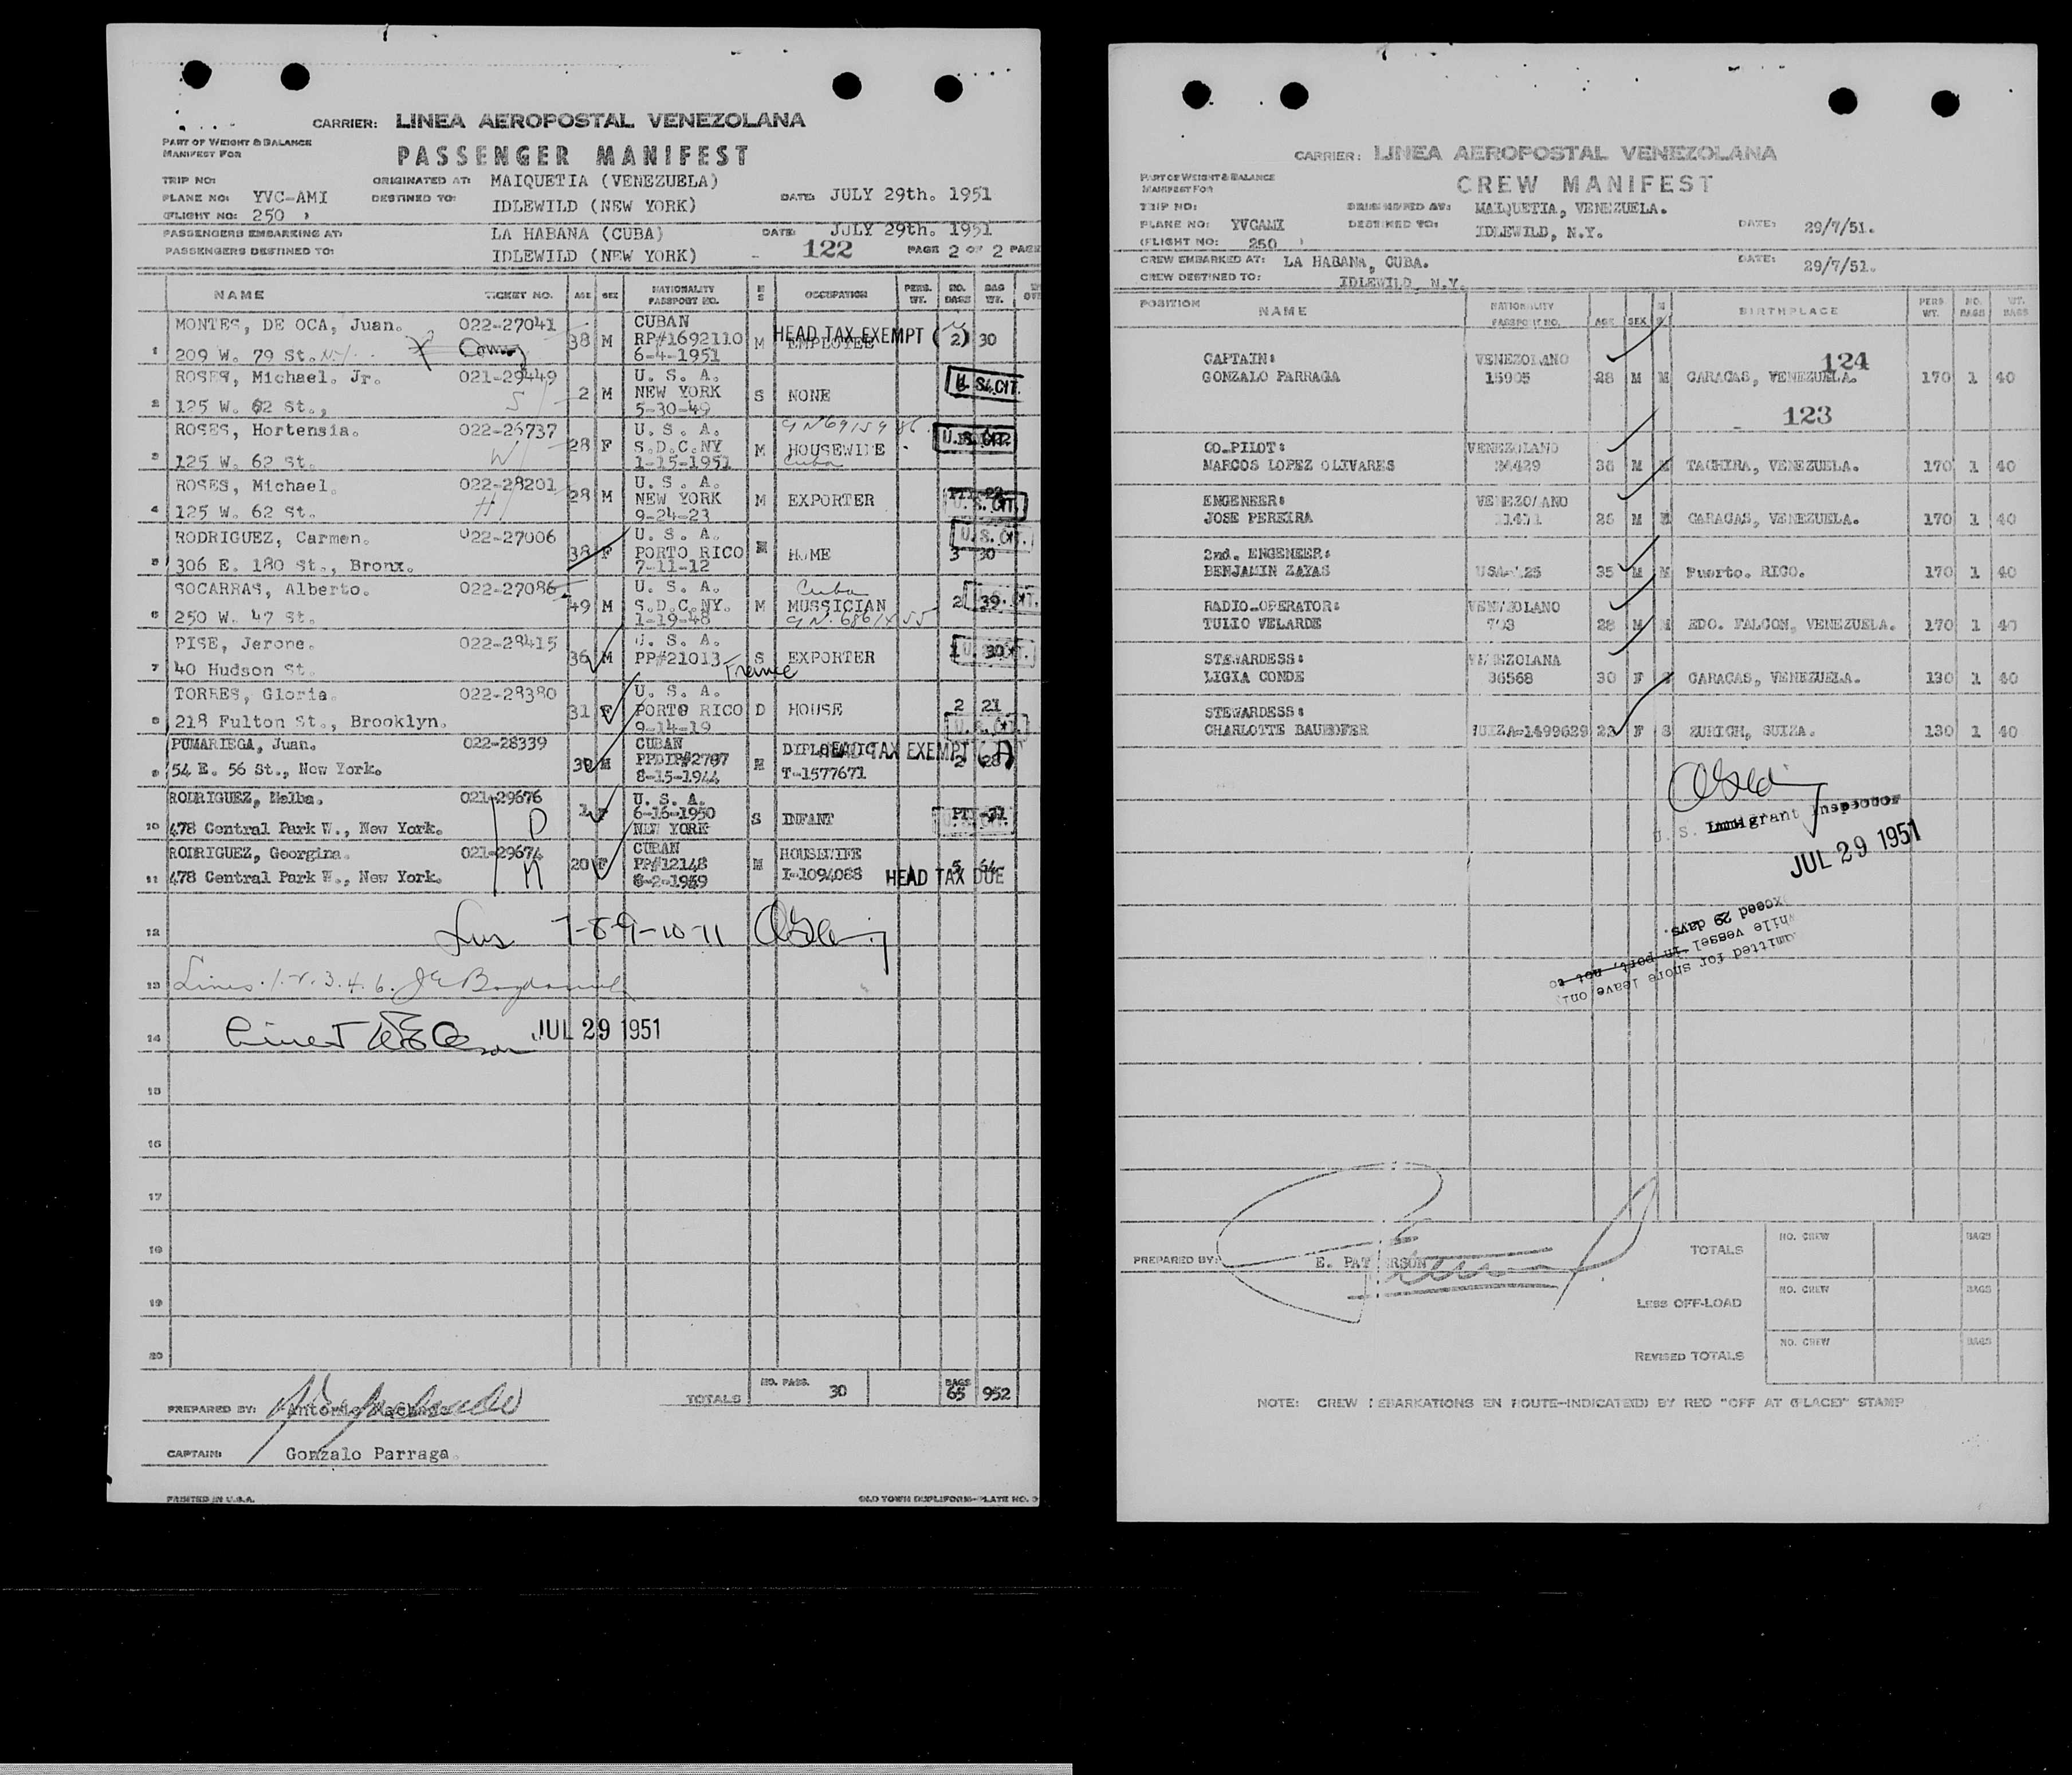 CARRIER: LINEA AEROPOSTAL VENEZOLANA
PART OF WEIGHT & BALANCE
MANIFEST FOR
PASSENGER MANIFEST
TRIP NO: ORIGINATED AT: MAIQUETIA (VENEZUELA)
PLANE NO: YVC-AMI DESTINED TO: IDLEWILD (NEW YORK) DATE: JULY 29th. 1951
(FLIGHT NO: 250 )
PASSENGERS EMBARKING AT: LA HABANA (CUBA) DATE: JULY 29th. 1951
PASSENGERS DESTINED TO: IDLEWILD (NEW YORK) 122 PAGE 2 OF 2 PAGE
NAME TICKET NO. AGE SEX NATIONALITY PASSPORT NO. M S OCCUPATION PERS. WT. NO. BAGS BAG WT.
MONTES, DE OCA, Juan. 022-27041 38 M CUBAN
RP#1692110 M EMPLOYEE HEAD TAX EXEMPT 2 30
1 209 W. 79 St. N.Y. 6-4-1951
ROSES, Michael. Jr. 021-29449 2 M U. S. A. U. S. CIT.
NEW YORK S NONE
2 125 W. 62 St., S 5-30-49
ROSES, Hortensia. 022-26737 28 F U. S. A.
S.D.C.NY M HOUSEWIFE
3 125 W. 62 St. W 1-15-1951 Cuba
ROSES, Michael. 022-28201 28 M U. S. A.
NEW YORK M EXPORTER U. S. CIT.
4 125 W. 62 St. H 9-24-23
RODRIGUEZ, Carmen. 022-27006 38 F U. S. A. U. S. CIT.
PORTO RICO M HOME 3 30
5 306 E. 180 St., Bronx. 7-11-12
SOCARRAS, Alberto. 022-27086 49 M U. S. A. Cuba
S.D.C.NY. M MUSSICIAN 2 39
6 250 W. 47 St. 1-19-48
PISE, Jerone. 022-28415 36 M U. S. A.
PP#21013 S EXPORTER 1 30
7 40 Hudson St. France
TORRES, Gloria. 022-28380 31 F U. S. A.
PORTO RICO D HOUSE 2 21
8 218 Fulton St., Brooklyn. 9-14-19 U. S. CIT.
PUMARIEGA, Juan. 022-28339 M CUBAN HEAD TAX EXEMPT
9 54 E. 56 St., New York. PPDIP#2787 M T-1577671 2 28
8-15-1944
RODRIGUEZ, Melba. 021-29676 1 F U. S. A.
6-16-1950 S INFANT
10 478 Central Park W., New York. D NEW YORK
RODRIGUEZ, Georgina. 021-29674 20 F CUBAN HOUSEWIFE
PP#12148 M I-1094088 5 64 HEAD TAX DUE
11 478 Central Park W., New York. M
12 7-8-9-10-11
13 Lines 1. 2. 3. 4. 6.
14 JUL 29 1951
15
16
17
18
19
20
TOTALS NO. PASS. 30 BAGS 65 952
PREPARED BY: Antonio Machado
CAPTAIN: Gonzalo Parraga.
PRINTED IN U.S.A. OLD TOWN DUPLIFORM-PLATE NO.
CARRIER: LINEA AEROPOSTAL VENEZOLANA
PART OF WEIGHT & BALANCE
MANIFEST FOR
CREW MANIFEST
TRIP NO: ORIGINATED AT: MAIQUETIA, VENEZUELA.
PLANE NO: YVCAMI DESTINED TO: IDLEWILD, N.Y. DATE: 29/7/51.
(FLIGHT NO: 250 )
CREW EMBARKED AT: LA HABANA, CUBA. DATE: 29/7/51.
CREW DESTINED TO: IDLEWILD, N.Y.
POSITION NAME NATIONALITY PASSPORT NO. AGE SEX M S BIRTHPLACE PERS WT. NO. BAGS WT. BAGS
CAPTAIN: VENEZOLANO 124
GONZALO PARRAGA 15905 28 M M CARACAS, VENEZUELA. 170 1 40
123
CO-PILOT: VENEZOLANO
MARCOS LOPEZ OLIVARES 36 M M TACHIRA, VENEZUELA. 170 1 40
ENGENEER: VENEZOLANO
JOSE PEREIRA 26 M M CARACAS, VENEZUELA. 170 1 40
2nd. ENGENEER:
BENJAMIN ZAYAS 35 M M Puerto. RICO. 170 1 40
RADIO-OPERATOR: VENEZOLANO
TULIO VELARDE 28 M M EDO. FALCON, VENEZUELA. 170 1 40
STEWARDESS: VENEZOLANA
LIGIA CONDE 36568 30 F S CARACAS, VENEZUELA. 130 1 40
STEWARDESS:
CHARLOTTE BAUHOFER SUIZA-1499629 23 F S ZURICH, SUIZA. 130 1 40
U. S. Immigrant Inspector
JUL 29 1951
admitted for shore leave only
while vessel in port, not to
exceed 29 days.
PREPARED BY: E. PATERSON
TOTALS NO. CREW BAGS
LESS OFF-LOAD NO. CREW BAGS
REVISED TOTALS NO. CREW BAGS
NOTE: CREW DEBARKATIONS EN ROUTE-INDICATED BY RED "OFF AT (PLACE)" STAMP